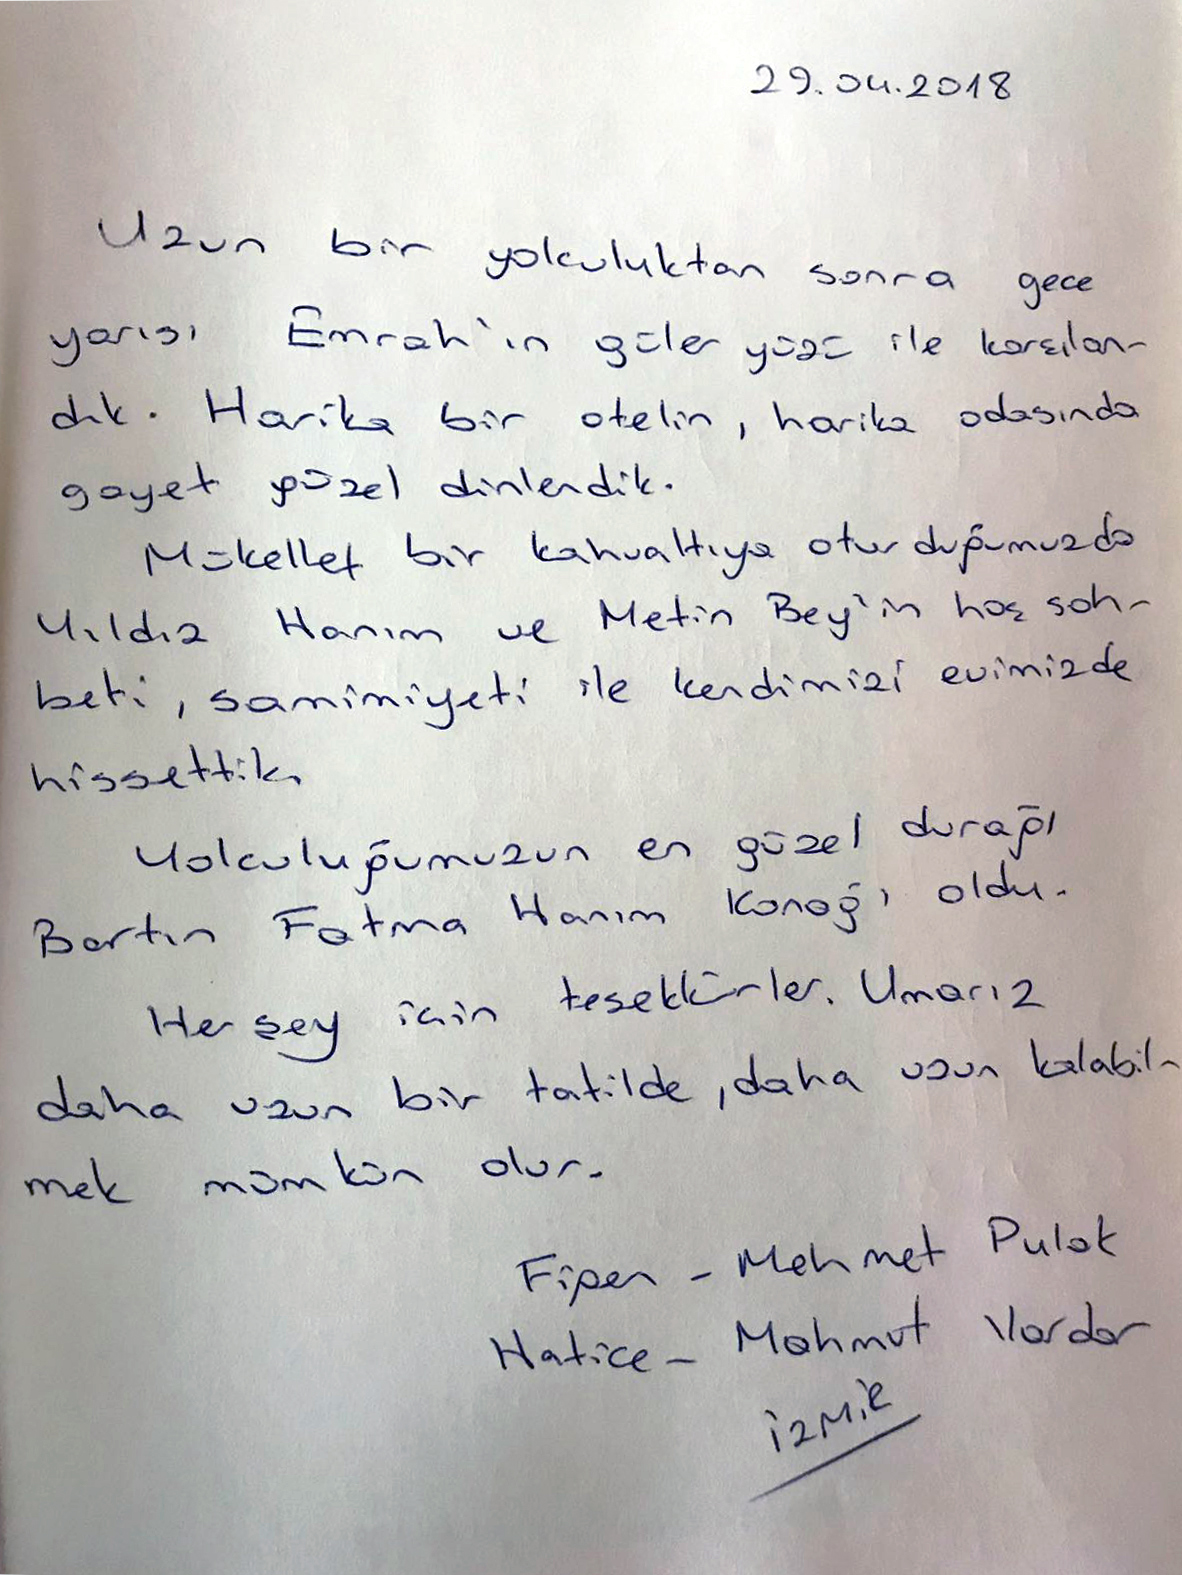 29.04.2018
Uzun bir yolculuktan sonra gece
yarısı Emrah'ın güler yüzü ile karşılan-
dık. Harika bir otelin, harika odasında
gayet güzel dinlendik.
Mükellef bir kahvaltıya oturduğumuzda
Yıldız Hanım ve Metin Bey'in hoş soh-
beti, samimiyeti ile kendimizi evimizde
hissettik.
Yolculuğumuzun en güzel durağı
Bartın Fatma Hanım Konağı oldu.
Her şey için teşekkürler. Umarız
daha uzun bir tatilde, daha uzun kalabil-
mek mümkün olur.
Figen - Mehmet Pulat
Hatice - Mahmut Vardar
İZMİR